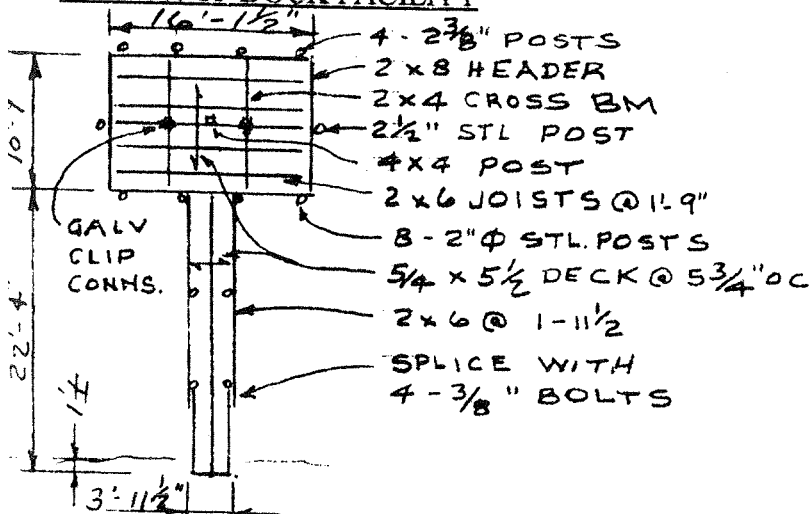 16'-1½"
4 - 2⅜" POSTS
2 x 8 HEADER
2 x 4 CROSS BM
2½" STL POST
4 x 4 POST
2 x 6 JOISTS @ 1'-9"
8 - 2"Φ STL. POSTS
5/4 x 5½ DECK @ 5¾" OC
2 x 6 @ 1-11½
SPLICE WITH
4 - ⅜" BOLTS
GALV
CLIP
CONNS.
22'-4"
3'-11½"